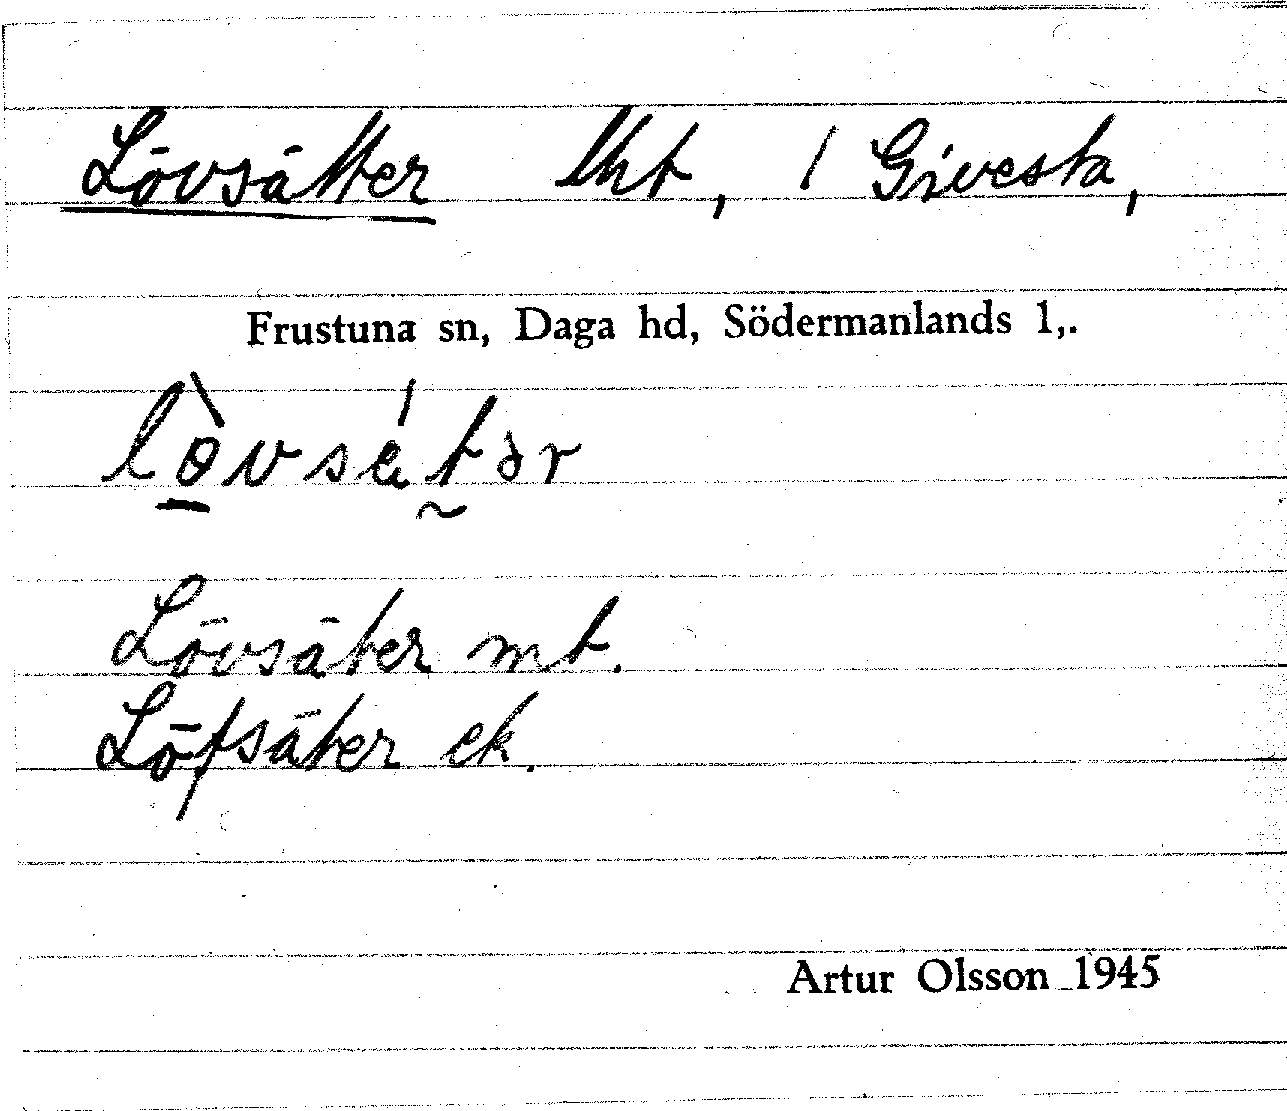 Lövsätter lht, / Givesta,
Frustuna sn, Daga hd, Södermanlands l,.
Lövsäter mt.
Löfsäter ek.
Artur Olsson 1945